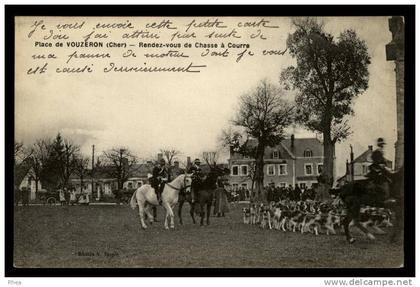 Je vous envoie cette petite carte
d'où j'ai atterri par suite de
Place de VOUZERON (Cher) — Rendez-vous de Chasse à Courre
ma panne de moteur dont je vous
ai causé dernièrement
www.delcampe.net